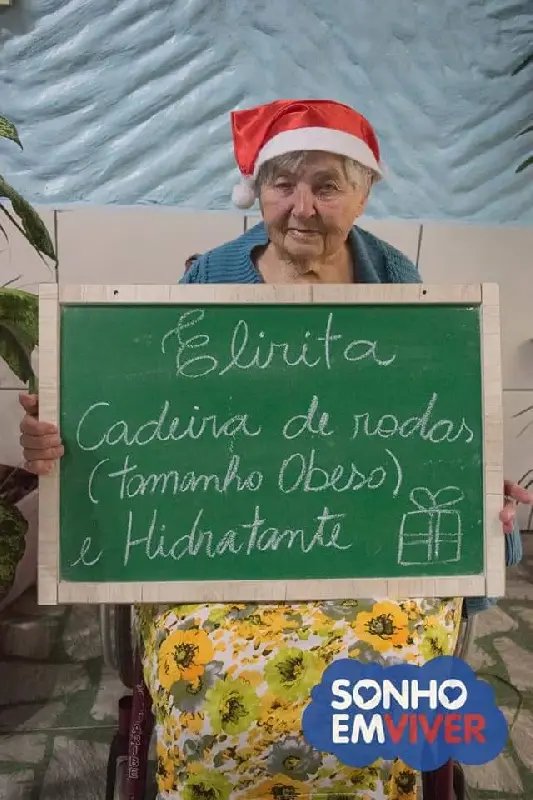 Elirita
Cadeira de rodas
(tamanho Obeso)
e Hidratante
SONHO
EMVIVER